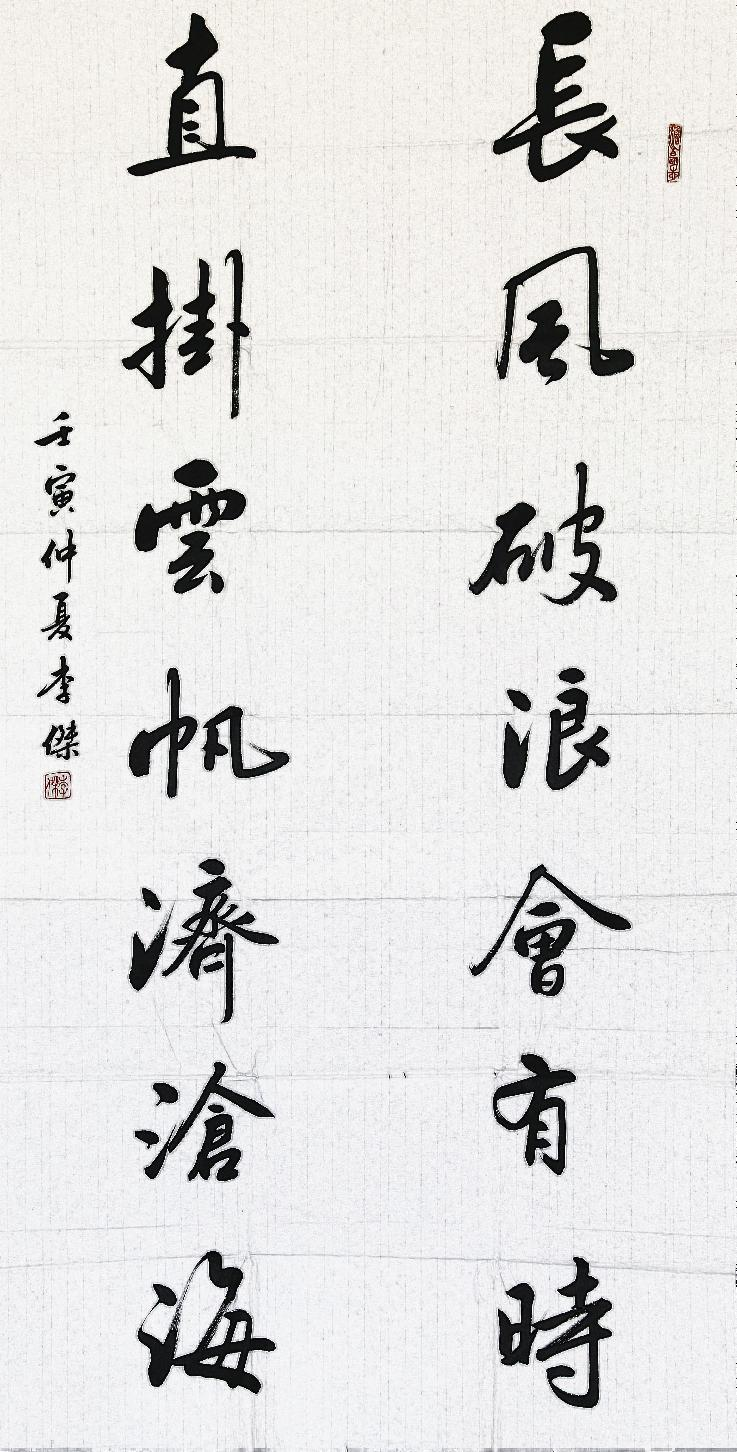 長風破浪會有時
直掛雲帆濟滄海
壬寅仲夏李傑